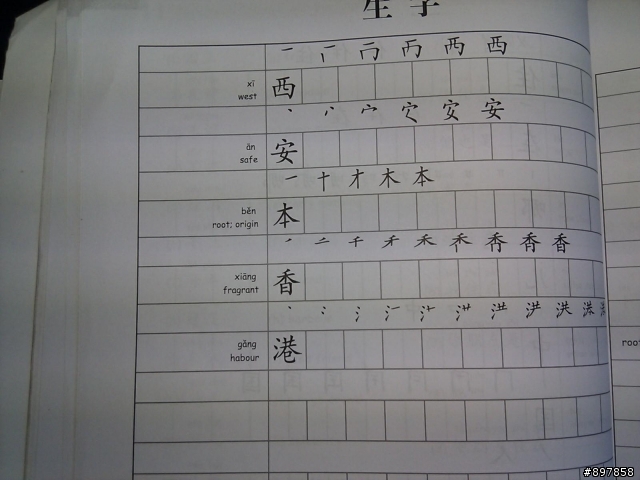 生字
一 西
xī
west 西
丶 宀 安
ān
safe 安
一 十 才 木 本
běn
root; origin 本
丿 二 千 禾 香
xiāng
fragrant 香
丶 氵 洪
gǎng
habour 港
root
#897858